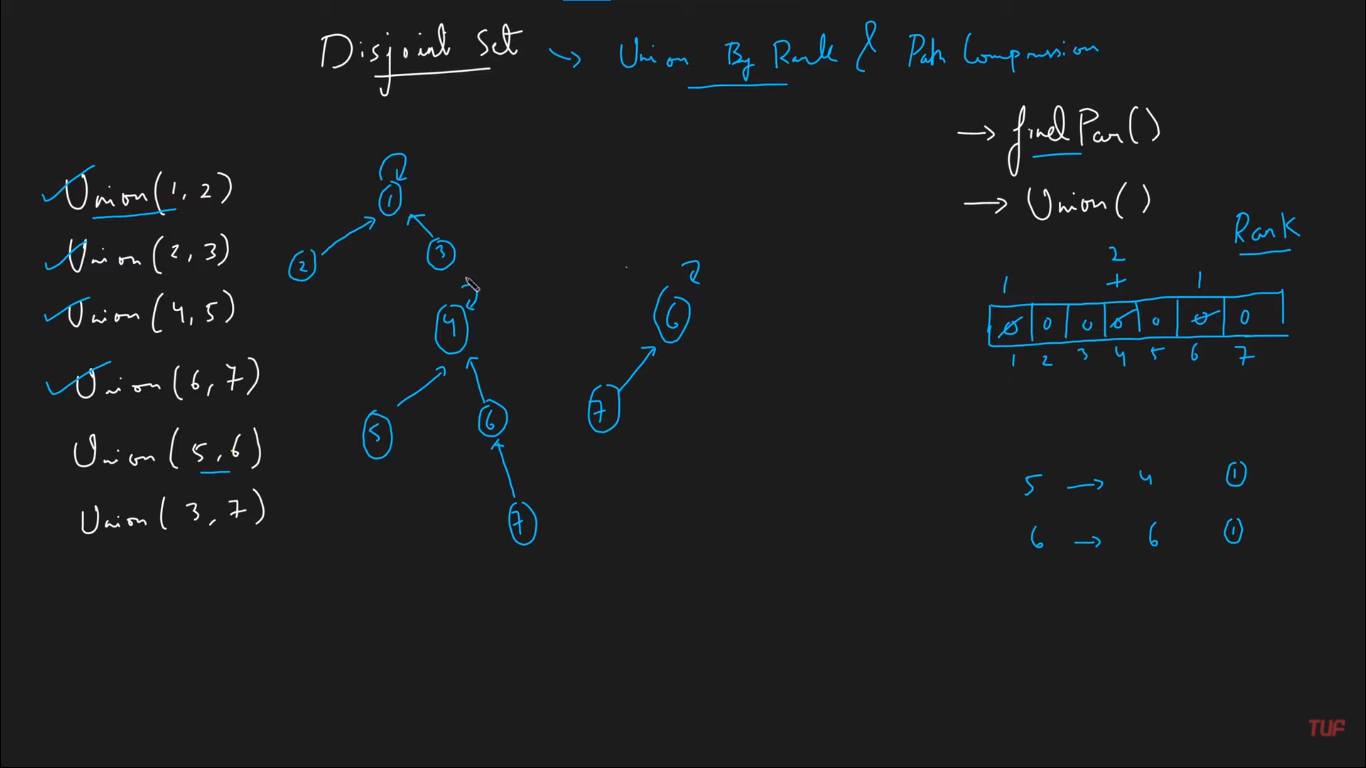 Disjoint Set → Union By Rank & Path Compression
→ findPar()
→ Union()
Union(1, 2)
Union(2, 3)
Union(4, 5)
Union(6, 7)
Union(5, 6)
Union(3, 7)
1
2
3
4
5
6
7
6
7
Rank
2
1 + 1
0 0 0 0 0 0 0
1 2 3 4 5 6 7
5 → 4 1
6 → 6 1
TUF